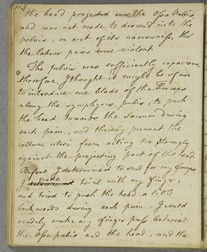 the head projected over the Ossa Pubis
and was not made to descend into the
pelvis, on acct of its narrowness, tho'
the labour pains were violent
The pelvis was sufficiently capacious,
therefore I thought it might be of use
to introduce one blade of the Forceps
along the symphysis pubis, to push
the head towards the Sacrum during
each pain, and thereby prevent the
from acting too strongly
against the projecting part of the head
Before I determined to send for my forceps
I tried with my finger
and tried to push the head a little
backwards during each pain. I could
readily make my finger pass between
the Ossa pubis and the head, and the